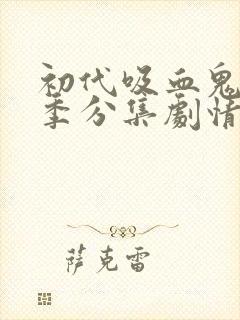 初代吸血鬼
季分集劇情
萨克雷